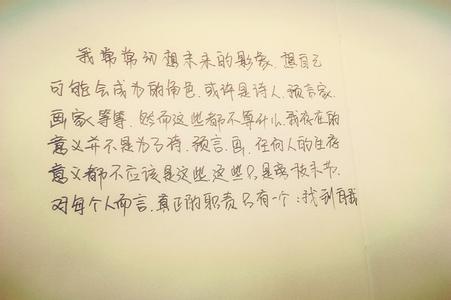 我常常幻想未来的影像，想自己
可能会成为的角色，或许是诗人，预言家，
画家等等，然而这些都不算什么，我存在的
意义并不是为了诗，预言，画，任何人的生存
意义都不应该是这些，这些只是旁枝末节，
对每个人而言，真正的职责只有一个：找到自我